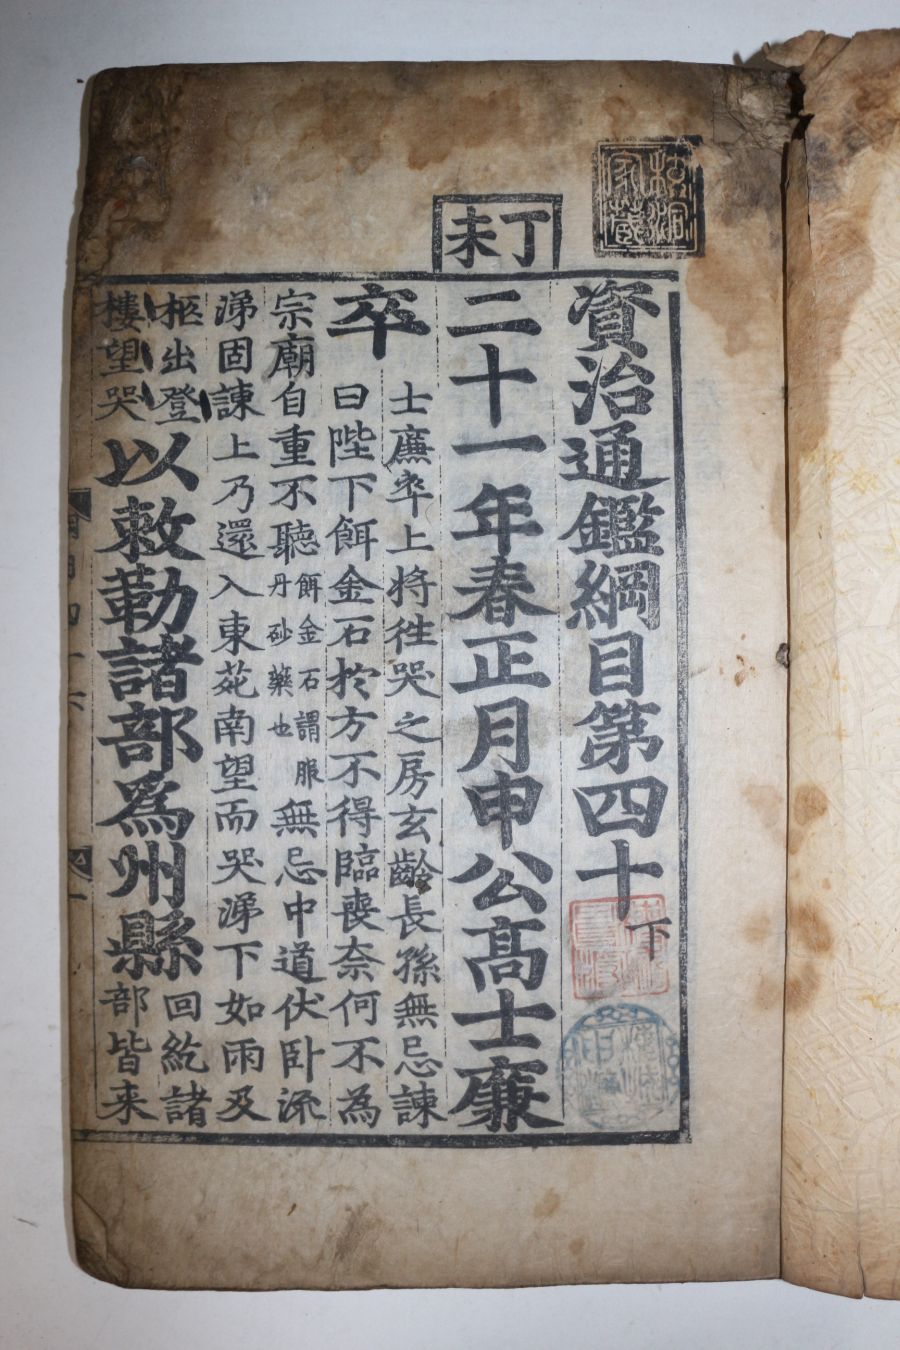 資治通鑑綱目第四十下
丁未
二十一年春正月申公髙士廉
卒
士廉卒上將往哭之房玄齡長孫無忌諫
曰陛下餌金石於方不得臨喪奈何不為
宗廟自重不聽
餌金石謂服
丹砂藥也
無忌中道伏卧流
涕固諫上乃還入東苑南望而哭涕下如雨及
柩出登
樓望哭
以敕勒諸部爲州縣
回紇諸
部皆来